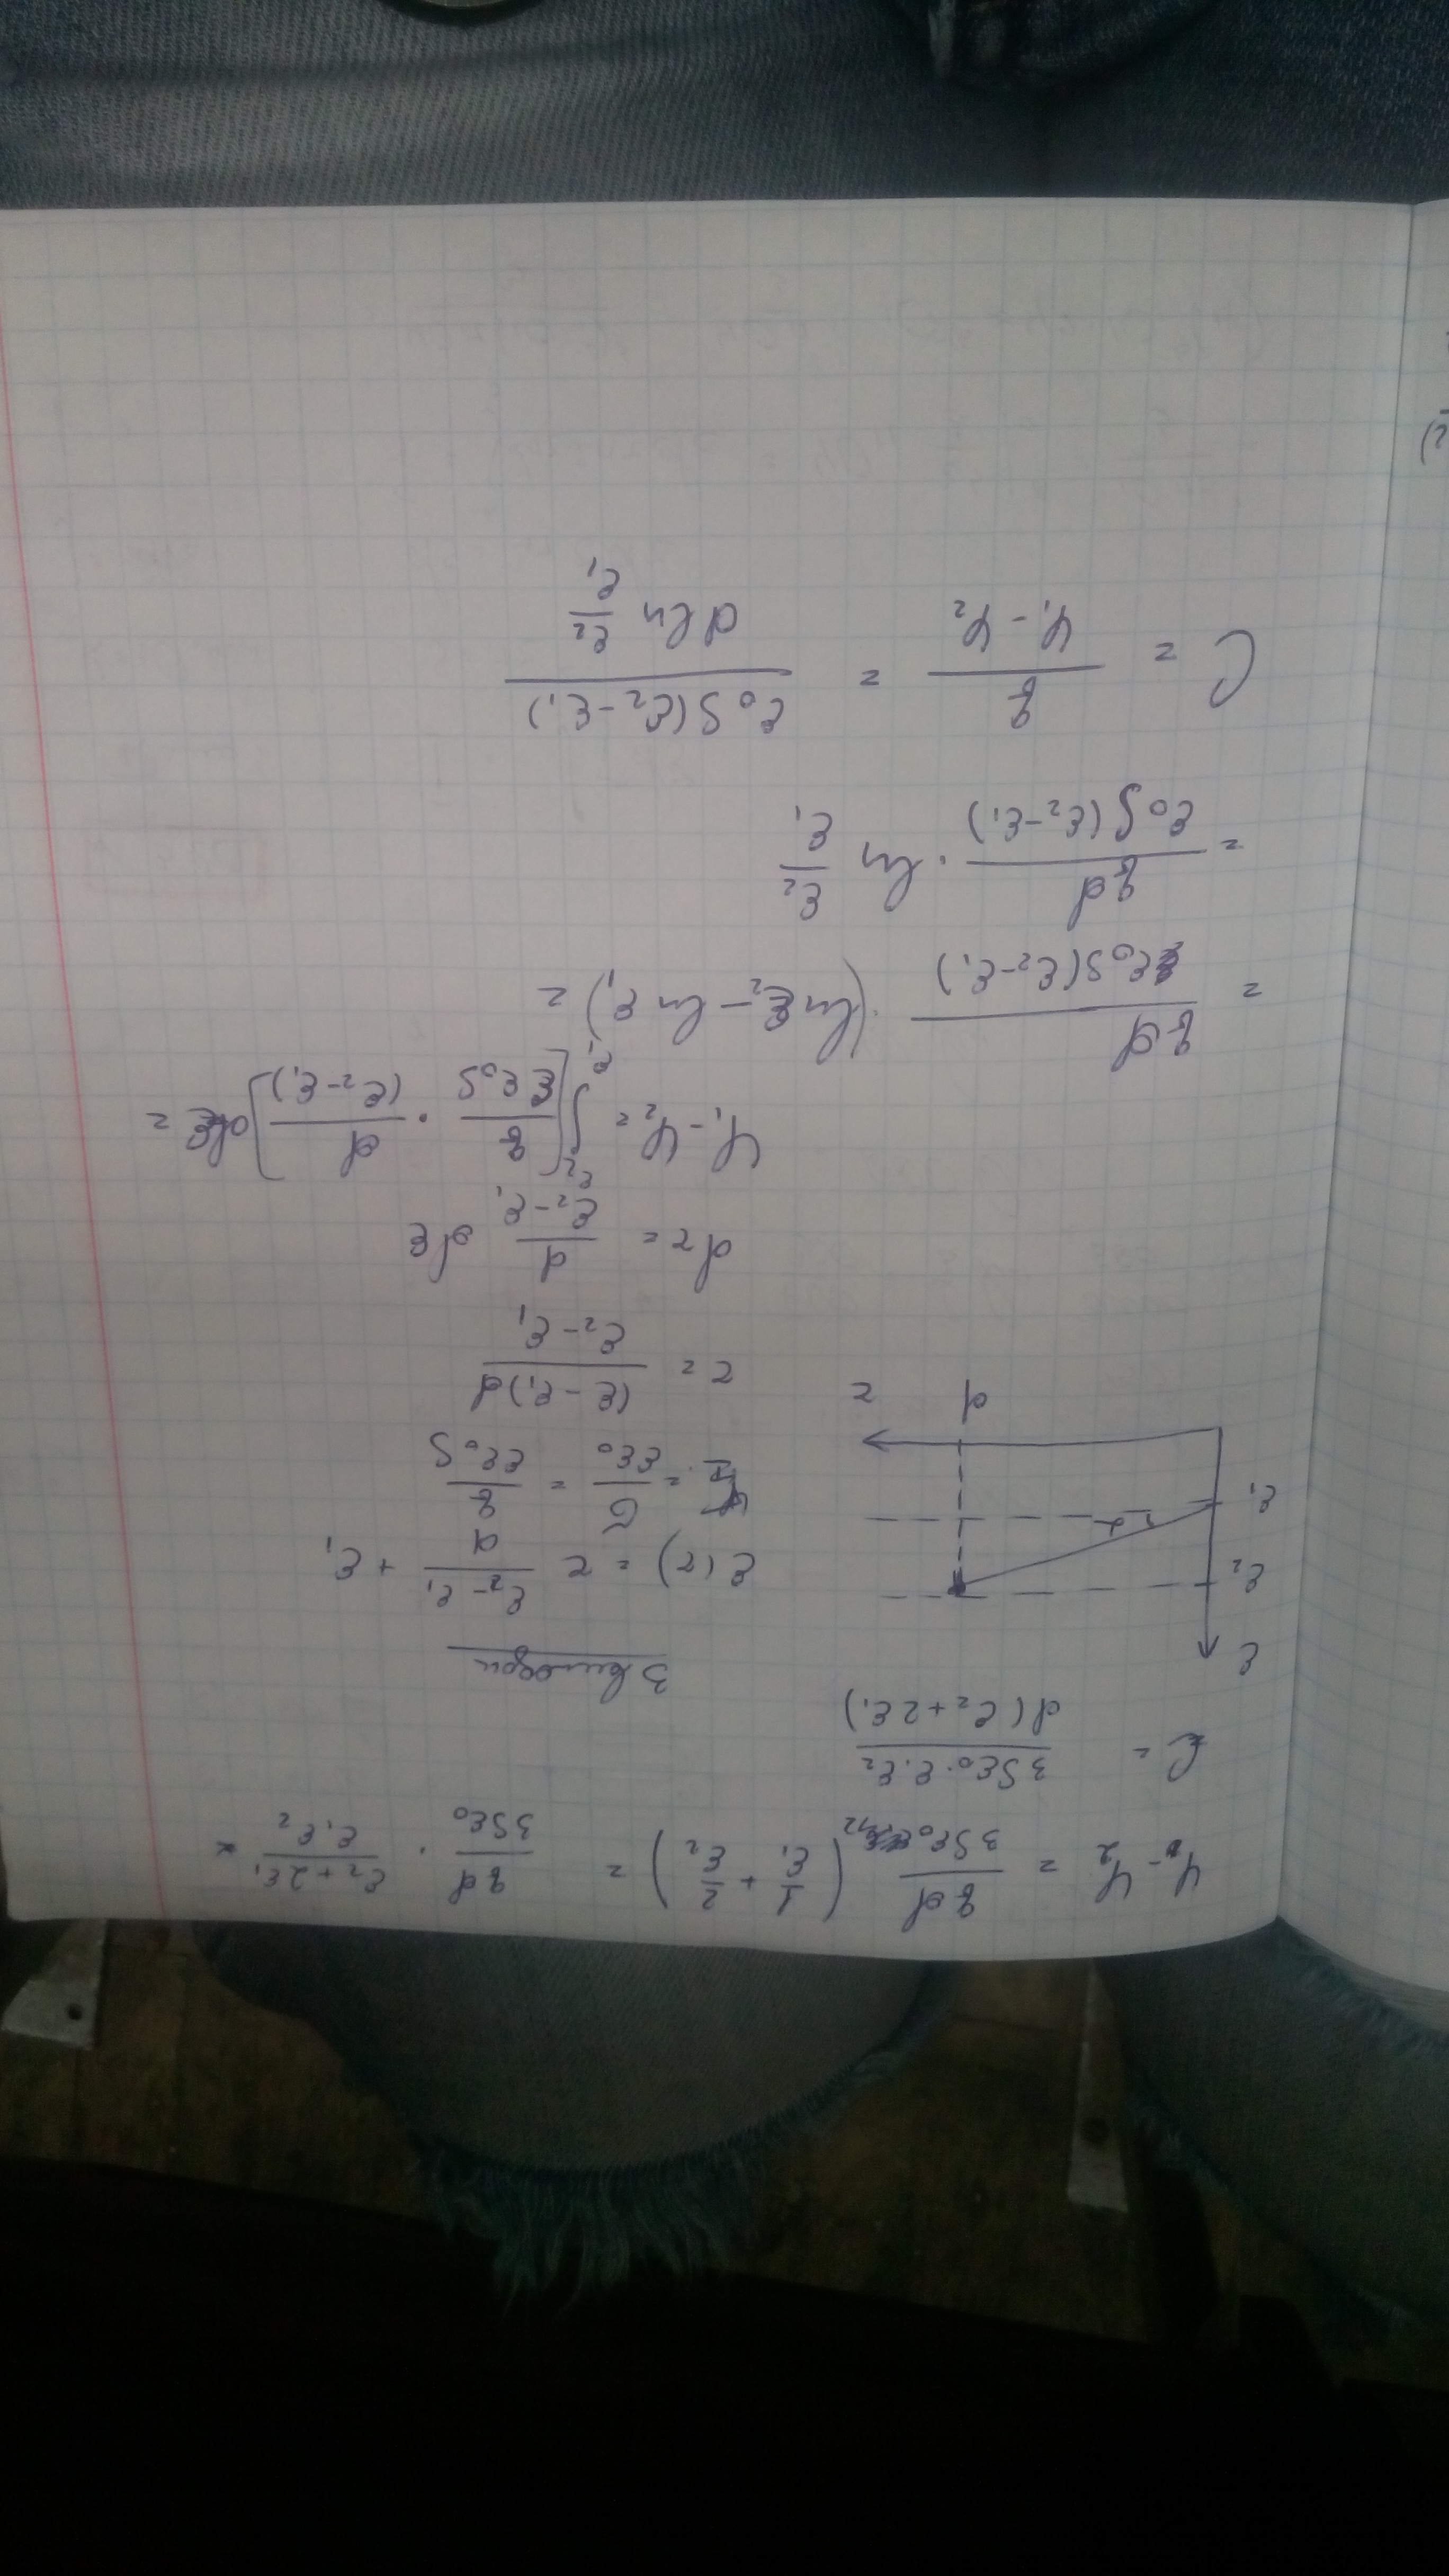 φ₁ - φ₂ = qd/3Sε₀ (1/ε₁ + 2/ε₂) = qd/3Sε₀ · (ε₂ + 2ε₁)/ε₁ε₂
C = 3Sε₀·ε₁ε₂/d(ε₂ + 2ε₁)
ε
ε₂
ε₁
α
d
r
ε(r) = r (ε₂ - ε₁)/d + ε₁
E = σ/εε₀ = q/εε₀S
r = (ε - ε₁)d/(ε₂ - ε₁)
dr = d/(ε₂ - ε₁) dε
φ₁ - φ₂ = ∫_{ε₁}^{ε₂} [q/εε₀S · d/(ε₂ - ε₁)] dε =
= qd/ε₀S(ε₂ - ε₁) · (ln ε₂ - ln ε₁) =
= qd/ε₀S(ε₂ - ε₁) · ln ε₂/ε₁
C = q/(φ₁ - φ₂) = ε₀S(ε₂ - ε₁)/(d ln ε₂/ε₁)
2)